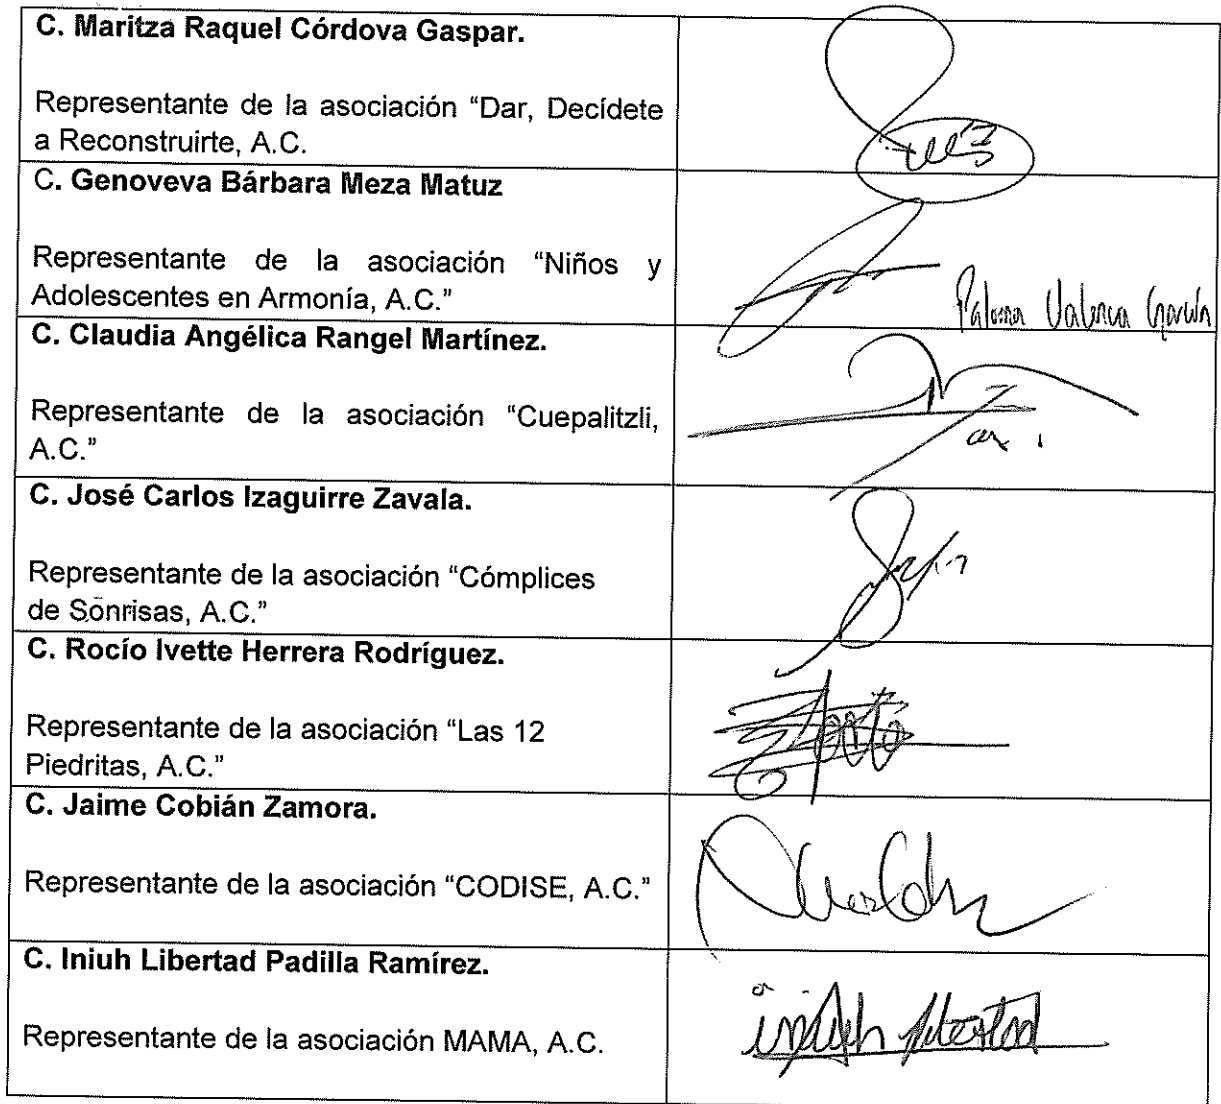 C. Maritza Raquel Córdova Gaspar.
Representante de la asociación “Dar, Decídete
a Reconstruirte, A.C.
C. Genoveva Bárbara Meza Matuz
Representante de la asociación “Niños y
Adolescentes en Armonía, A.C.”
Paloma Valencia
C. Claudia Angélica Rangel Martínez.
Representante de la asociación “Cuepalitzli,
A.C.”
C. José Carlos Izaguirre Zavala.
Representante de la asociación “Cómplices
de Sonrisas, A.C.”
C. Rocío Ivette Herrera Rodríguez.
Representante de la asociación “Las 12
Piedritas, A.C.”
C. Jaime Cobián Zamora.
Representante de la asociación “CODISE, A.C.”
C. Iniuh Libertad Padilla Ramírez.
Representante de la asociación MAMA, A.C.
iniuh libertad